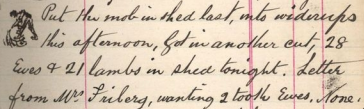 Put the mob in shed last, into widerups
this afternoon, Got in another cut, 28
Ewes & 21 lambs in shed tonight. Letter
from Mrs Friberg, wanting 2 tooth Ewes. None